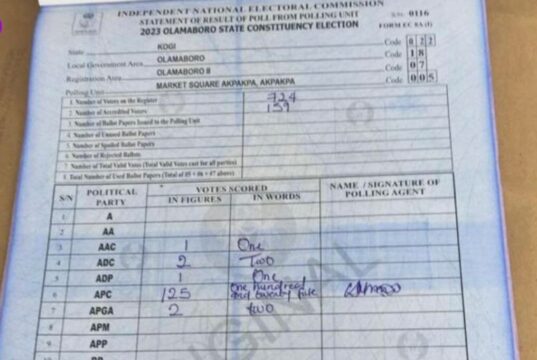 INDEPENDENT NATIONAL ELECTORAL COMMISSION
STATEMENT OF RESULT OF POLL FROM POLLING UNIT S/N: 0116
2023 OLAMABORO STATE CONSTITUENCY ELECTION FORM EC 8A (I)
State KOGI Code 022
Local Government Area OLAMABORO Code 18
Registration Area OLAMABORO II Code 07
Polling Unit MARKET SQUARE AKPAKPA, AKPAKPA Code 005
1 Number of Voters on the Register 724
2 Number of Accredited Voters 139
3 Number of Ballot Papers Issued to the Polling Unit
4 Number of Unused Ballot Papers
5 Number of Spoiled Ballot Papers
6 Number of Rejected Ballots
7 Number of Total Valid Votes (Total Valid Votes cast for all parties)
8 Total Number of Used Ballot Papers (Total of 05 + 06 + 07 above)
S/N POLITICAL PARTY VOTES SCORED NAME / SIGNATURE OF POLLING AGENT
IN FIGURES IN WORDS
1 A
2 AA
3 AAC 1 One
4 ADC 2 Two
5 ADP 1 One
6 APC 125 One hundred and twenty five
7 APGA 2 two
8 APM
9 APP
ORIGINAL